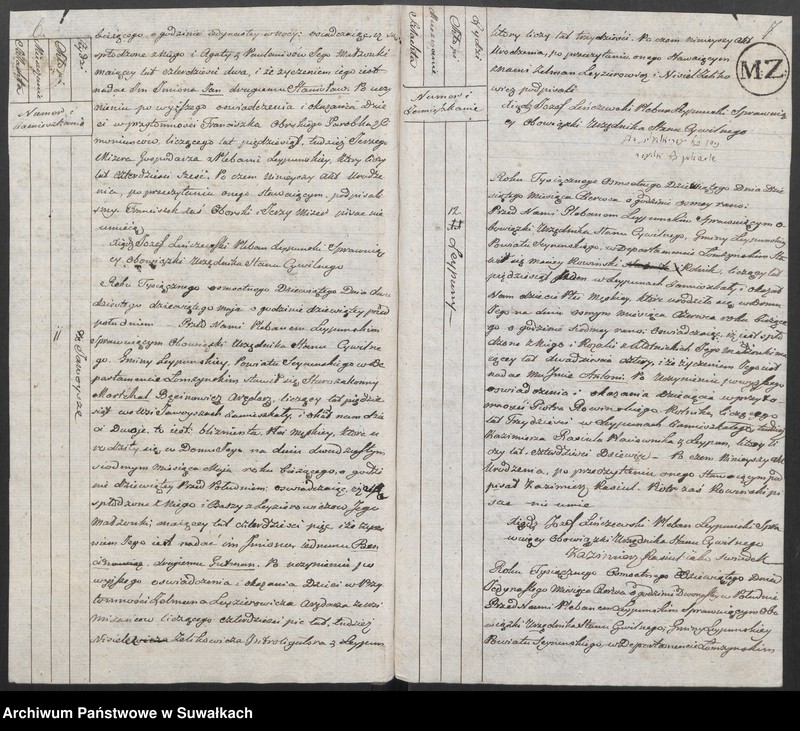 6
Szlachta
Mieszanie
Chłopi
Żydzi
Numer i
Zamieszkanie
bieżącego, o godzinie jedynastej w nocy: oświadczając, iż są
spłodzone z niego i Agaty z Pawłowiczów Jego Małżonki
maiącey lat czterdzieści dwa, i że życzeniem iego iest
nadać Im Imiona Jan drugiemu Stanisław. Po uczy
nieniu powyższego oświadczenia i okazania Dzie
ci w przytomności Franciszka Obrskiego Parobka z
liczącego lat pięćdziesiąt, tudzież Jerzego
Mizera Gospodarza z Plebanii Leypuńskiey, który liczy
lat czterdzieści sześć. Po czem ninieyszy Akt Urodze
nia, po przeczytaniu onego stawaiącym, podpisali
śmy. Franciszek zaś Oborski i Jerzy Mizer pisać nie
umieią
Xiądz Jozef Leiczewski Pleban Leypunski Sprawuią
cy obowiązki Urzędnika Stanu Cywilnego
11
z Jaworysze
Roku Tysiącznego osmsetnego Dziewiątego Dnia dwu
dziestego dziewiątego maja o godzinie dziewiątey przed
południem Przed Nami Plebanem Leypunskim
Sprawuiącym Obowiązki Urzędnika Stanu Cywilne
go Gminy Leypunskiey, Powiatu Seynenskiego w De
partamencie Łomżynskim Stawił się Starozakonny
Morthel Bęcinowicz Arędarz, liczący lat pięćdzie
siąt w wsi Jaworyszach zamieszkały, i okazał nam dzie
ci Dwoje to iest: bliznienta Płci męskiey, które u
rodziły się w Domu Jego na dniu dwudziestym
siodmym miesiąca Maja roku bieżącego, o godzi
nie dziewiątey Przed Południem; oświadczaiąc, iż są
spłodzone z niego i Baszy z Leyzerowiczow Jego
Małżonki, maiącey lat czterdzieści pięć, i że życze
niem Jego iest nadać im Imiona, iednemu Ben
drugiemu Gutman. Po uczynieniu po
wyższego oświadczenia i okazania Dzieci w Przy
tomności Zelmana Leyzerowicza Arędarza ze wsi
liczącego czterdzieści pięć lat, tudzież
Nisiela Zelikowicza Introligatora z Leypun
7
MZ
Szlachta
Mieszanie
Chłopi
Żydzi
Numer i
Zamieszkanie
który liczy lat trzydzieści. Po czem ninieyszy Akt
Urodzenia, po przeczytaniu onego Stawaiącym
znami Zelman Leyzerowicz i Nisiel Zeliko
wicz podpisali
Xiądz Jozef Leiczewski Pleban Leypunski Sprawuią
cy Obowiązki Urzędnika Stanu Cywilnego
12
Leypuny
Roku Tysiącznego Osmsetnego Dziewiątego Dnia Dzie
wiątego miesiąca Czerwca o godzinie osmey rano:
Przed Nami Plebanem Leypunskim Sprawuiącym o
bowiązki Urzędnika Stanu Cywilnego, Gminy Leypunskiey
Powiatu Seynenskiego, w Departamencie Łomżynskim Sta
wił się Maciey Rowiński Rolnik, liczący lat
pięćdziesiąt jeden w Leypunach zamieszkały, i okazał
Nam dziecie Płci Męskiey, które urodziło się w Domu
Jego na dniu osmym miesiąca Czerwca roku bieżące
go o godzinie siódmey rano: oświadczaiąc, iż iest spło
dzone z niego i Rozalii z Jego Małżonki ma
iącey lat dwadzieścia cztery, i że życzeniem Jego iest
nadać mu Imie Antoni. Po Uczynieniu powyższego
oświadczenia i okazania dziecięcia w przyto
mności Piotra Rowinskiego Rolnika liczącego
lat Trzydzieści w Leypunach zamieszkałego, tudzież
Kazimierza Rasiula z Leypun, który li
czy lat czterdzieści Dziewięć. Po czem Ninieyszy akt
Urodzenia, po przeczytaniu onego Stawaiącym pod
pisał Kazimierz Rasiul. Piotr zaś Rowinski pi
sać nie umie
Xiądz Jozef Leiczewski Pleban Leypunski Spra
wuiący Obowiązki Urzędnika Stanu Cywilnego
Kazimierz Rasiul jako świadek
Roku Tysiącznego Osmsetnego Dziewiątego Dnia
Jedynastego Miesiąca Czerwca o godzinie Dwunastey w Południe
Przed Nami Plebanem Leypunskim Sprawuiącym Obo
wiązki Urzędnika Stanu Cywilnego, Gminy Leypunskiey
Powiatu Seynenskiego, w Departamencie Łomżynskim
Archiwum Państwowe w Suwałkach